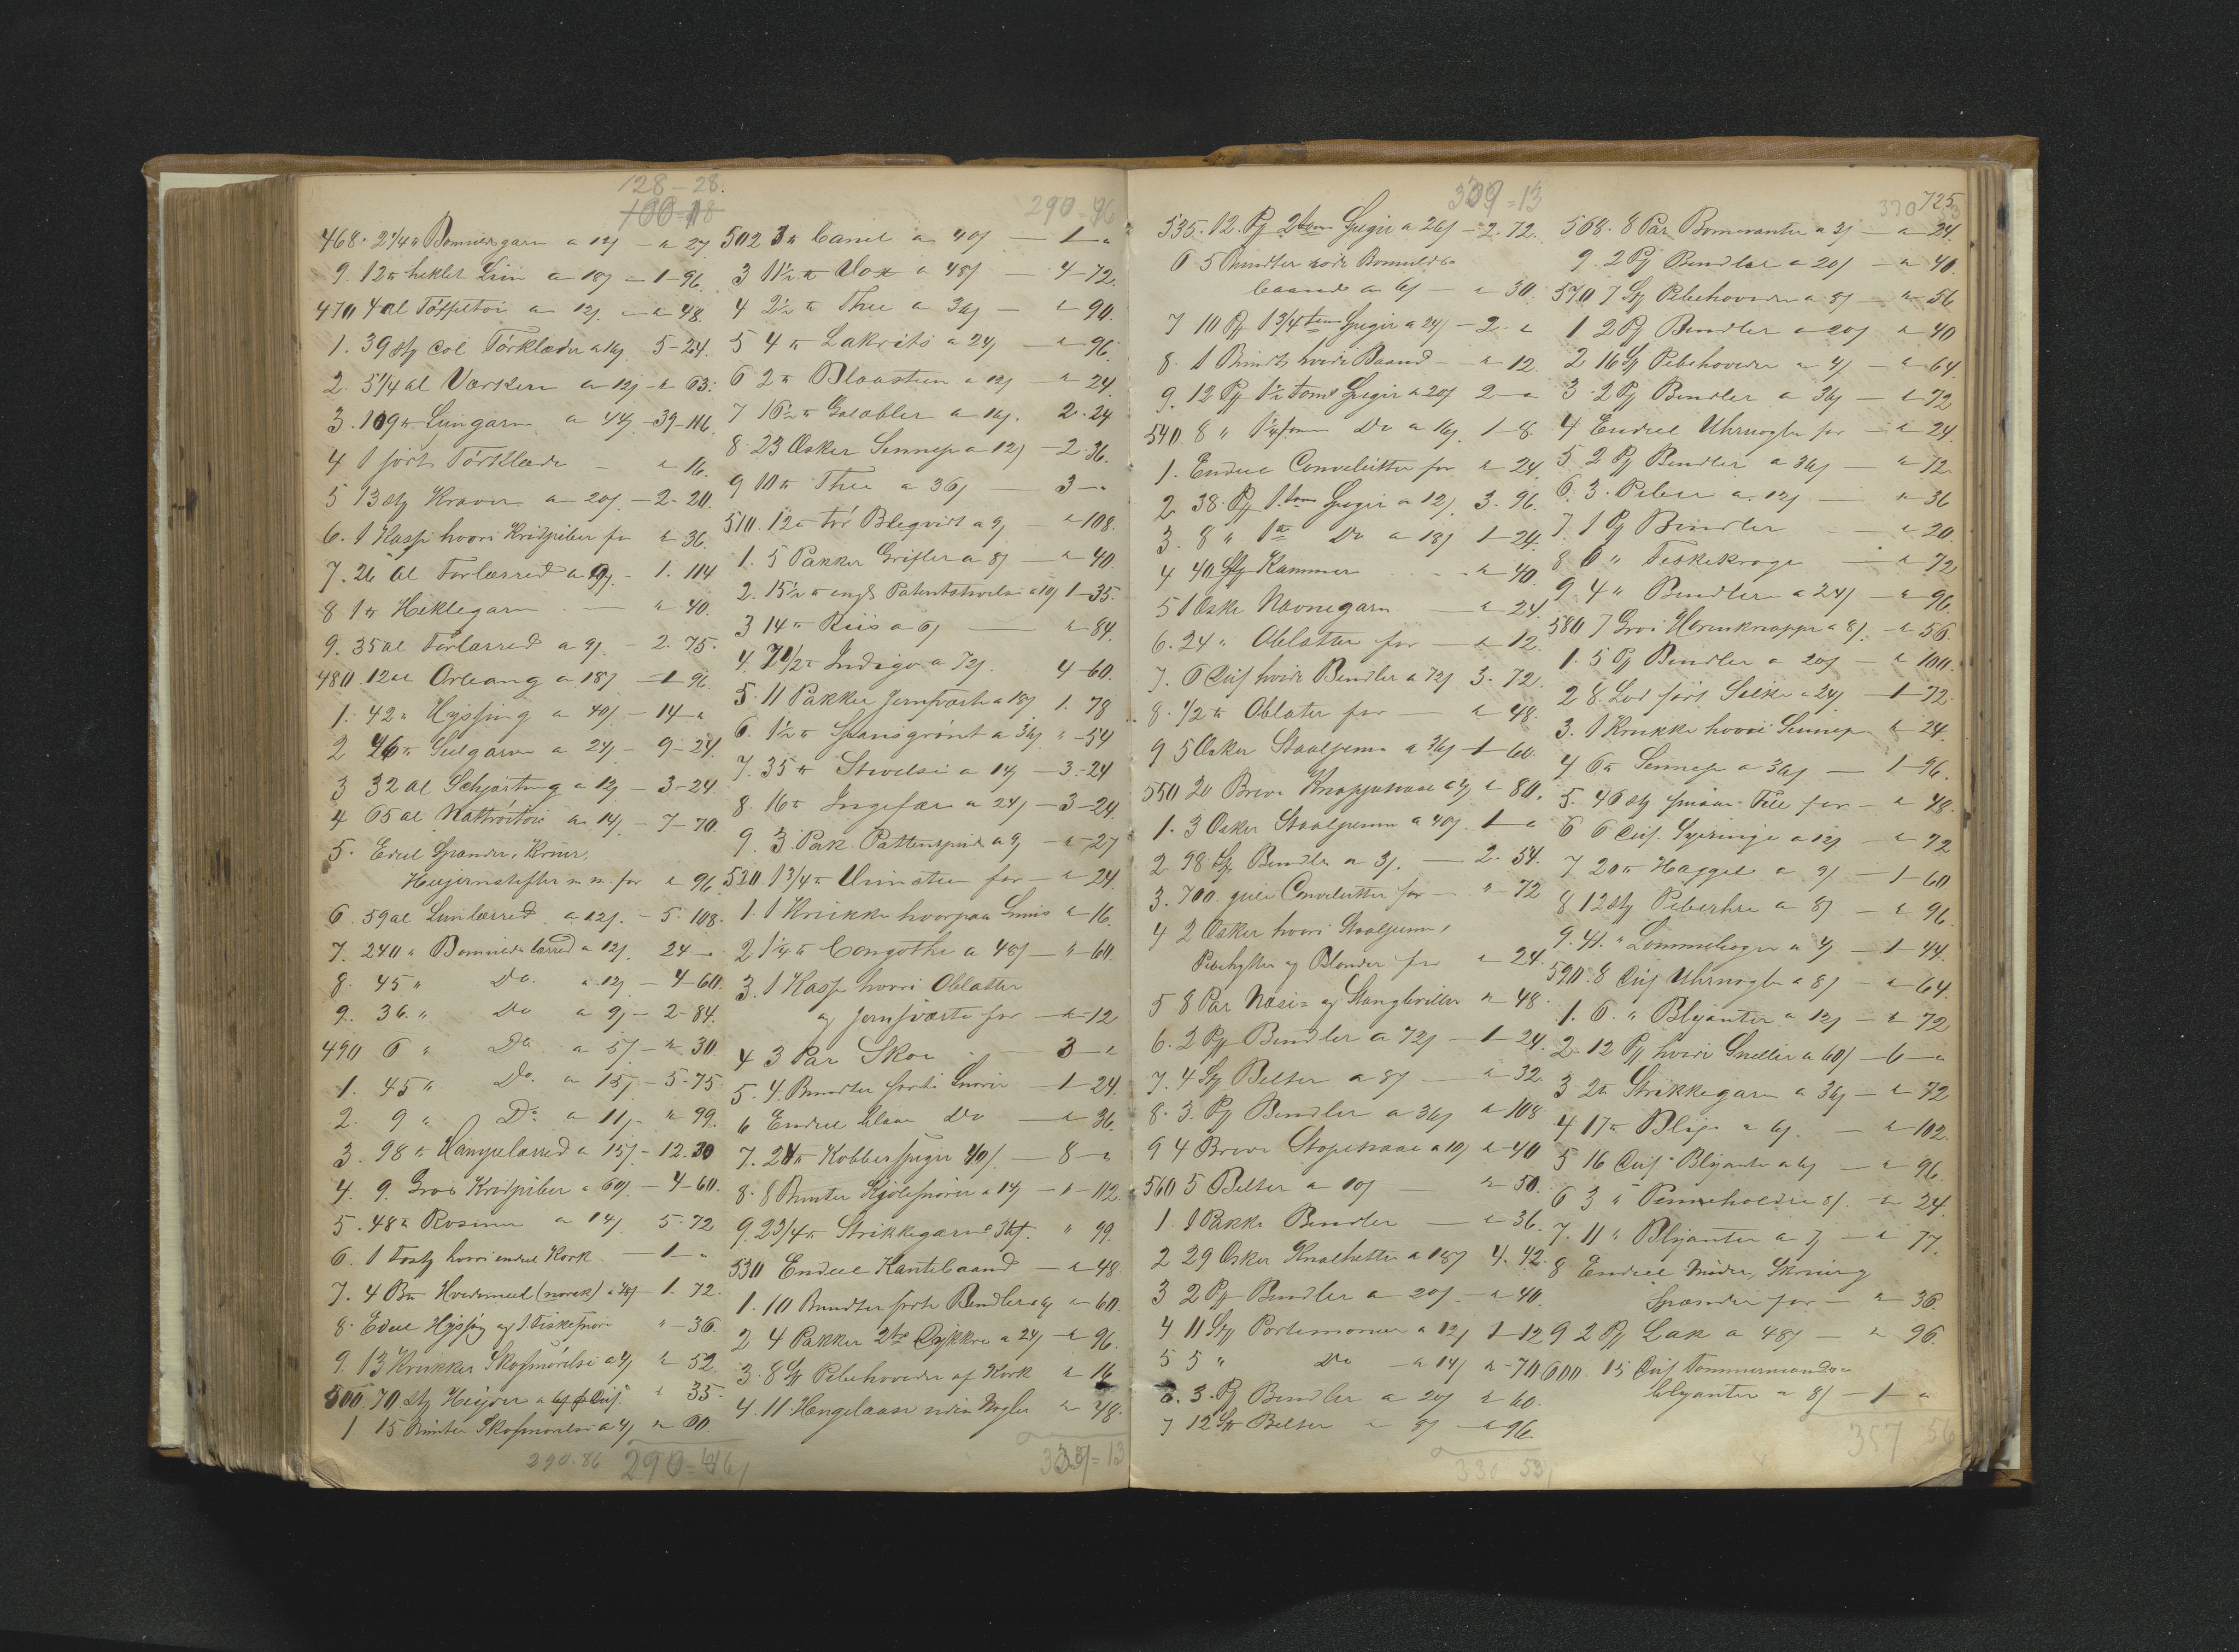 128-28.
290
468. 2 1/4 ℔ Bomuldsgarn a 12ʃ - " 27
9. 12 ℔ heklet Liin a 18ʃ - 1-96.
470 4 al Töffeltöi a 12ʃ. - " 48.
1. 39 stz col Törklæder a 16ʃ 5-24.
2. 5 1/4 al Værken a 12ʃ - " 63.
3. 109 ℔ Liingarn a 44ʃ - 39-116.
4 1 sort Törklæde - " 16.
5 13 stz Kraver a 20ʃ - 2-20.
6. 1 Kasse hvori Kridpiber for " 36.
7. 26 al Forlærred a 9ʃ - 1. 114
8 1 ℔ Heklegarn - " 40.
9. 35 al Forlærred a 9ʃ - 2. 75.
480. 12 al Orleang a 18ʃ - 1-96.
1. 42 " Hyssing a 40ʃ - 14 "
2 46 ℔ Seilgarn a 24ʃ - 9-24.
3 32 al Schjorting a 12ʃ - 3-24.
4 65 al Nattröitöi a 14ʃ - 7-70.
5. Edeel Spænder, Kruus,
m. m. for " 96
6. 59 al Liinlærred a 12ʃ. - 5. 108.
7. 240 " Bomuldslærred a 12ʃ. 24 "
8. 45 " Do. a 12ʃ - 4-60.
9. 36. " Do a 9ʃ - 2-84.
490 6 " Do a 5ʃ - " 30.
1. 45 " Do. a 15ʃ - 5-75.
2. 9 " Do a 11ʃ - " 99.
3. 98 ℔ Hampelærred a 15ʃ - 12.30
4. 9. Gros Kridpiber a 60ʃ - 4-60.
5. 48 ℔ Rosiner a 14ʃ 5-72
6. 1 hvori endeel Kork - 1 "
7. 4 B℔ Hvedemeel (norsk) a 48ʃ 1. 72.
8. Edeel Hyssing og 1 Fiskesnöre " - 36.
9. 13 Krukker Skosmörelse a 4ʃ " 52.
500. 70 stz Hægter a 6ʃ p Duʃ " 35.
1 15 Bunter Skosmörelse a 4ʃ " 60.
290.86
502 3 ℔ Canel a 40ʃ - 1 "
3 11 1/2 ℔ Vox a 48ʃ - 4-72.
4 2 1/2 ℔ Thee a 36ʃ - " 90.
5 4 ℔ Lakrits a 24ʃ - " 96.
6 2 ℔ Blaasteen a 12ʃ - " 24.
7 16 1/2 ℔ Galæbler a 16ʃ. 2-24
8 23 Æsker Sennep a 12ʃ - 2-36.
9 10 ℔ Thee a 36ʃ - 3 "
510. 12 ℔ tör Blegvidt a 9ʃ - " 108.
1. 5 Pakker Grifler a 8ʃ - " 40.
2. 15 1/2 ℔ engls Patentstivelse a 10ʃ 1-35.
3 14 ℔ Riis a 6ʃ - " 84.
4. 7 1/2 ℔ Indigo a 72ʃ. 4-60.
5. 11 Pakker Jernsværte a 18ʃ 1. 78
6. 1 1/2 ℔ Spansgrönt a 36ʃ " - 54
7. 35 ℔ Stivelse a 14ʃ - 3-24
8. 16 ℔ Ingefær a 24ʃ - 3-24.
9. 3 Pak a 9ʃ - " 27
520. 1 3/4 ℔ Viinsteen for - " 24.
1. 1 Krukke hvorpaa Snuus " 16.
2 1 1/4 ℔ Congothe a 48ʃ - " 60.
3. 1 Kasse hvori Oblatter
og Jernsværte for - " 12
4 3 Par Skoe - 3 "
5. 4. Bundter sorte Snorer - 1-24.
6 Endeel blaae Do - " 36.
7. 24 ℔ Kobberspiger 40ʃ. - 8 "
8. 8 Bunter Kjolesnorer a 14ʃ - " 112.
9. 2 3/4 ℔ Strikkegarn a 36ʃ. " 99.
530 Endeel Kantebaand - " 48.
1. 10 Bundter sorte Bendler a 6ʃ " 60.
2 4 Pakker a 24ʃ - " 96.
3. 8 Stz Pibehoveder af Kork " 16
4. 11 Hængelaase uden Nøgler " 48.
339=13
339=13
535. 12. Pz 2 toms Spiger a 26ʃ - 2. 72.
6 5 Bundter röde Bomulds-
baand a 6ʃ - " 30.
7 10 Pz 1 3/4 toms Spiger a 24ʃ - 2 "
8. 1 Bundt hvide Baand - " 12.
9. 12 Pz 1 1/2 toms Spiger a 20ʃ 2 "
540. 8 " 1 1/4 toms Do a 16ʃ. 1-8.
1. Endeel Convolutter for " 24
2. 38. Pz 1 toms Spiger a 12ʃ. 3. 96.
3. 8 " Do a 18ʃ 1-24.
4 40 Stz Kammer " 40.
5 1 Æske Navnegarn. - " 24.
6. 24 " Oblatter for - " 12.
7. 6 Duʃ hvide Bendler a 72ʃ 3. 72.
8. 1/2 ℔ Oblater for - " 48.
9 5 Æsker Staalpenne a 36ʃ - 1-60.
550 20 Breve Knappenaale a 4ʃ " 80.
1. 3 Æsker Staalpenne a 40ʃ. 1 "
2. 98. Stz Bendler a 3ʃ. - 2. 54.
3. 700. gule Convolutter for - " 72
4 2 Æsker hvori Staalpenne,
og Blonder for " 24.
5 8 Par Næse- og Stangbriller " 48.
6. 2 Pz Bendler a 72ʃ - 1-24.
7. 4 Stz Belter a 8ʃ - " 32.
8. 3. Pz Bendler a 36ʃ " 108
9 4 Breve Stoppenaale a 10ʃ " 40
560 5 Belter a 10ʃ - " 50.
1. 1 Pakke Bendler - " 36.
2 29 Æsker Knaldhetter a 18ʃ 4. 42.
3 2 Pz Bendler a 20ʃ - " 40.
4 11 Stz Portemonner a 12ʃ 1-12
5 5 " Do - a 14ʃ " - 70
6. 3. Pz Bendler a 20ʃ " 60.
7 12 Stz Belter a 8ʃ - " 96.
330 53
725.
330
568. 8 Par Bomvanter a 3ʃ - " 24.
9. 2 Pz Bendler a 20ʃ - " 40.
570. 7 Stz Pibehoveder a 8ʃ - " 56
1 2 Pz Bendler a 20ʃ " 40
2 16 Stz Pibehoveder a 4ʃ - " 64.
3. 2 Pz Bendler a 36ʃ - " 72
4 Endeel Uhrnøgler for - " 24.
5. 2 Pz Bendler a 36ʃ - " 72
6. 3. Piber a 12ʃ. - " 36
7. 1 Pz Bendler - " 20.
8 6 " Fiskekroge - " 72
9. 4 " Bendler a 24ʃ - " 96.
580 7 Gros Hornknapper a 8ʃ. - " 56.
1. 5 Pz Bendler a 20ʃ - " 100.
2 8. Lod sort Silke a 24ʃ - 1-72.
3. 1 Krukke hvori Sennep " 24.
4 6 ℔ Sennep a 36ʃ - 1-96.
5. 46 stz smaae File for - " 48.
6 6 Duʃ. Syeringe a 12ʃ - " 72
7 20 ℔ Haggel a 9ʃ - 1-60
8 12 stz a 8ʃ - " 96.
9. 41. " Lommebøger a 4ʃ - 1-44.
590. 8 Duʃ Uhrnøgler a 8ʃ - " 64.
1. 6. " Blyanter a 12ʃ - " 72
2. 12 Pz hvide Sneller a 60ʃ - 6 "
3 2 ℔ Strikkegarn a 36ʃ - " 72
4 17 ℔ Bly a 6ʃ. - " 102.
5 16 Duʃ Blyanter a 6ʃ - " 96.
6 3 " Penneholdere 8ʃ. - " 24.
7. 11 " Blyanter a 7ʃ - " 77.
8 Endeel
Spænder for - " 36.
9 2 Pz Lak a 48ʃ - " 96.
600. 15 Duʃ Tømmermands-
blyanter a 8ʃ - 1 "
357 56